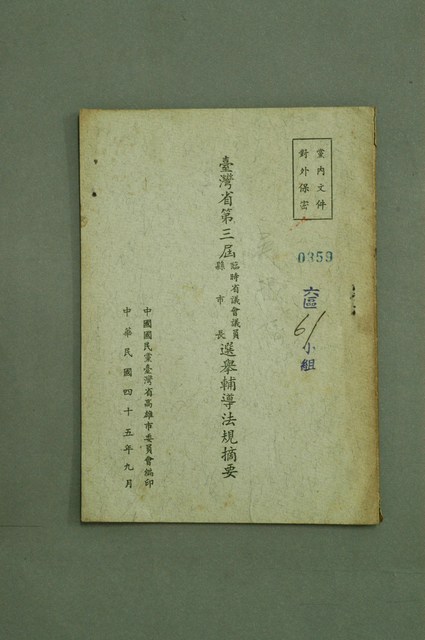 黨內文件
對外保密
0359
六區
61
小組
臺灣省第三屆臨時省議會議員縣市長選舉輔導法規摘要
中國國民黨臺灣省高雄市委員會編印
中華民國四十五年九月